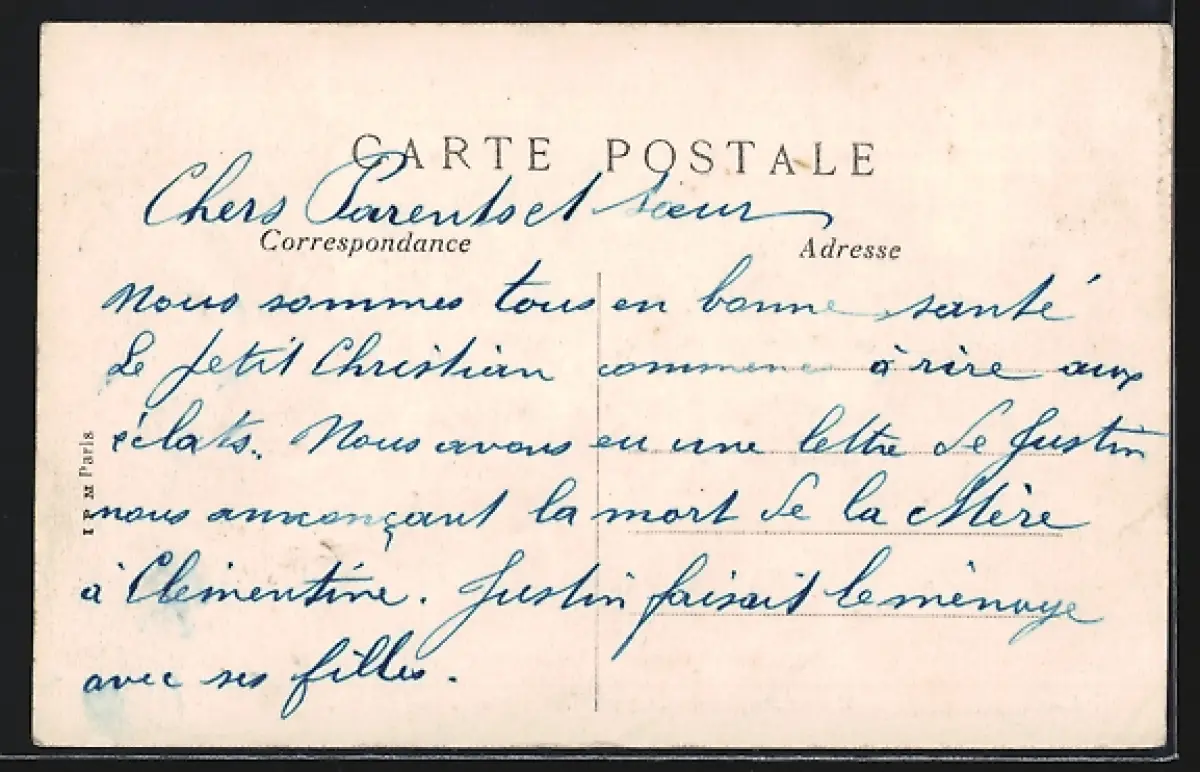 CARTE POSTALE
Chers Parents et sœur
Correspondance
Adresse
Nous sommes tous en bonne santé
Le petit Christian commence à rire aux
éclats. Nous avons eu une lettre de Justin
nous annonçant la mort de la Mère
à Clémentine. Justin faisait le ménage
avec ses filles.
I P M Paris